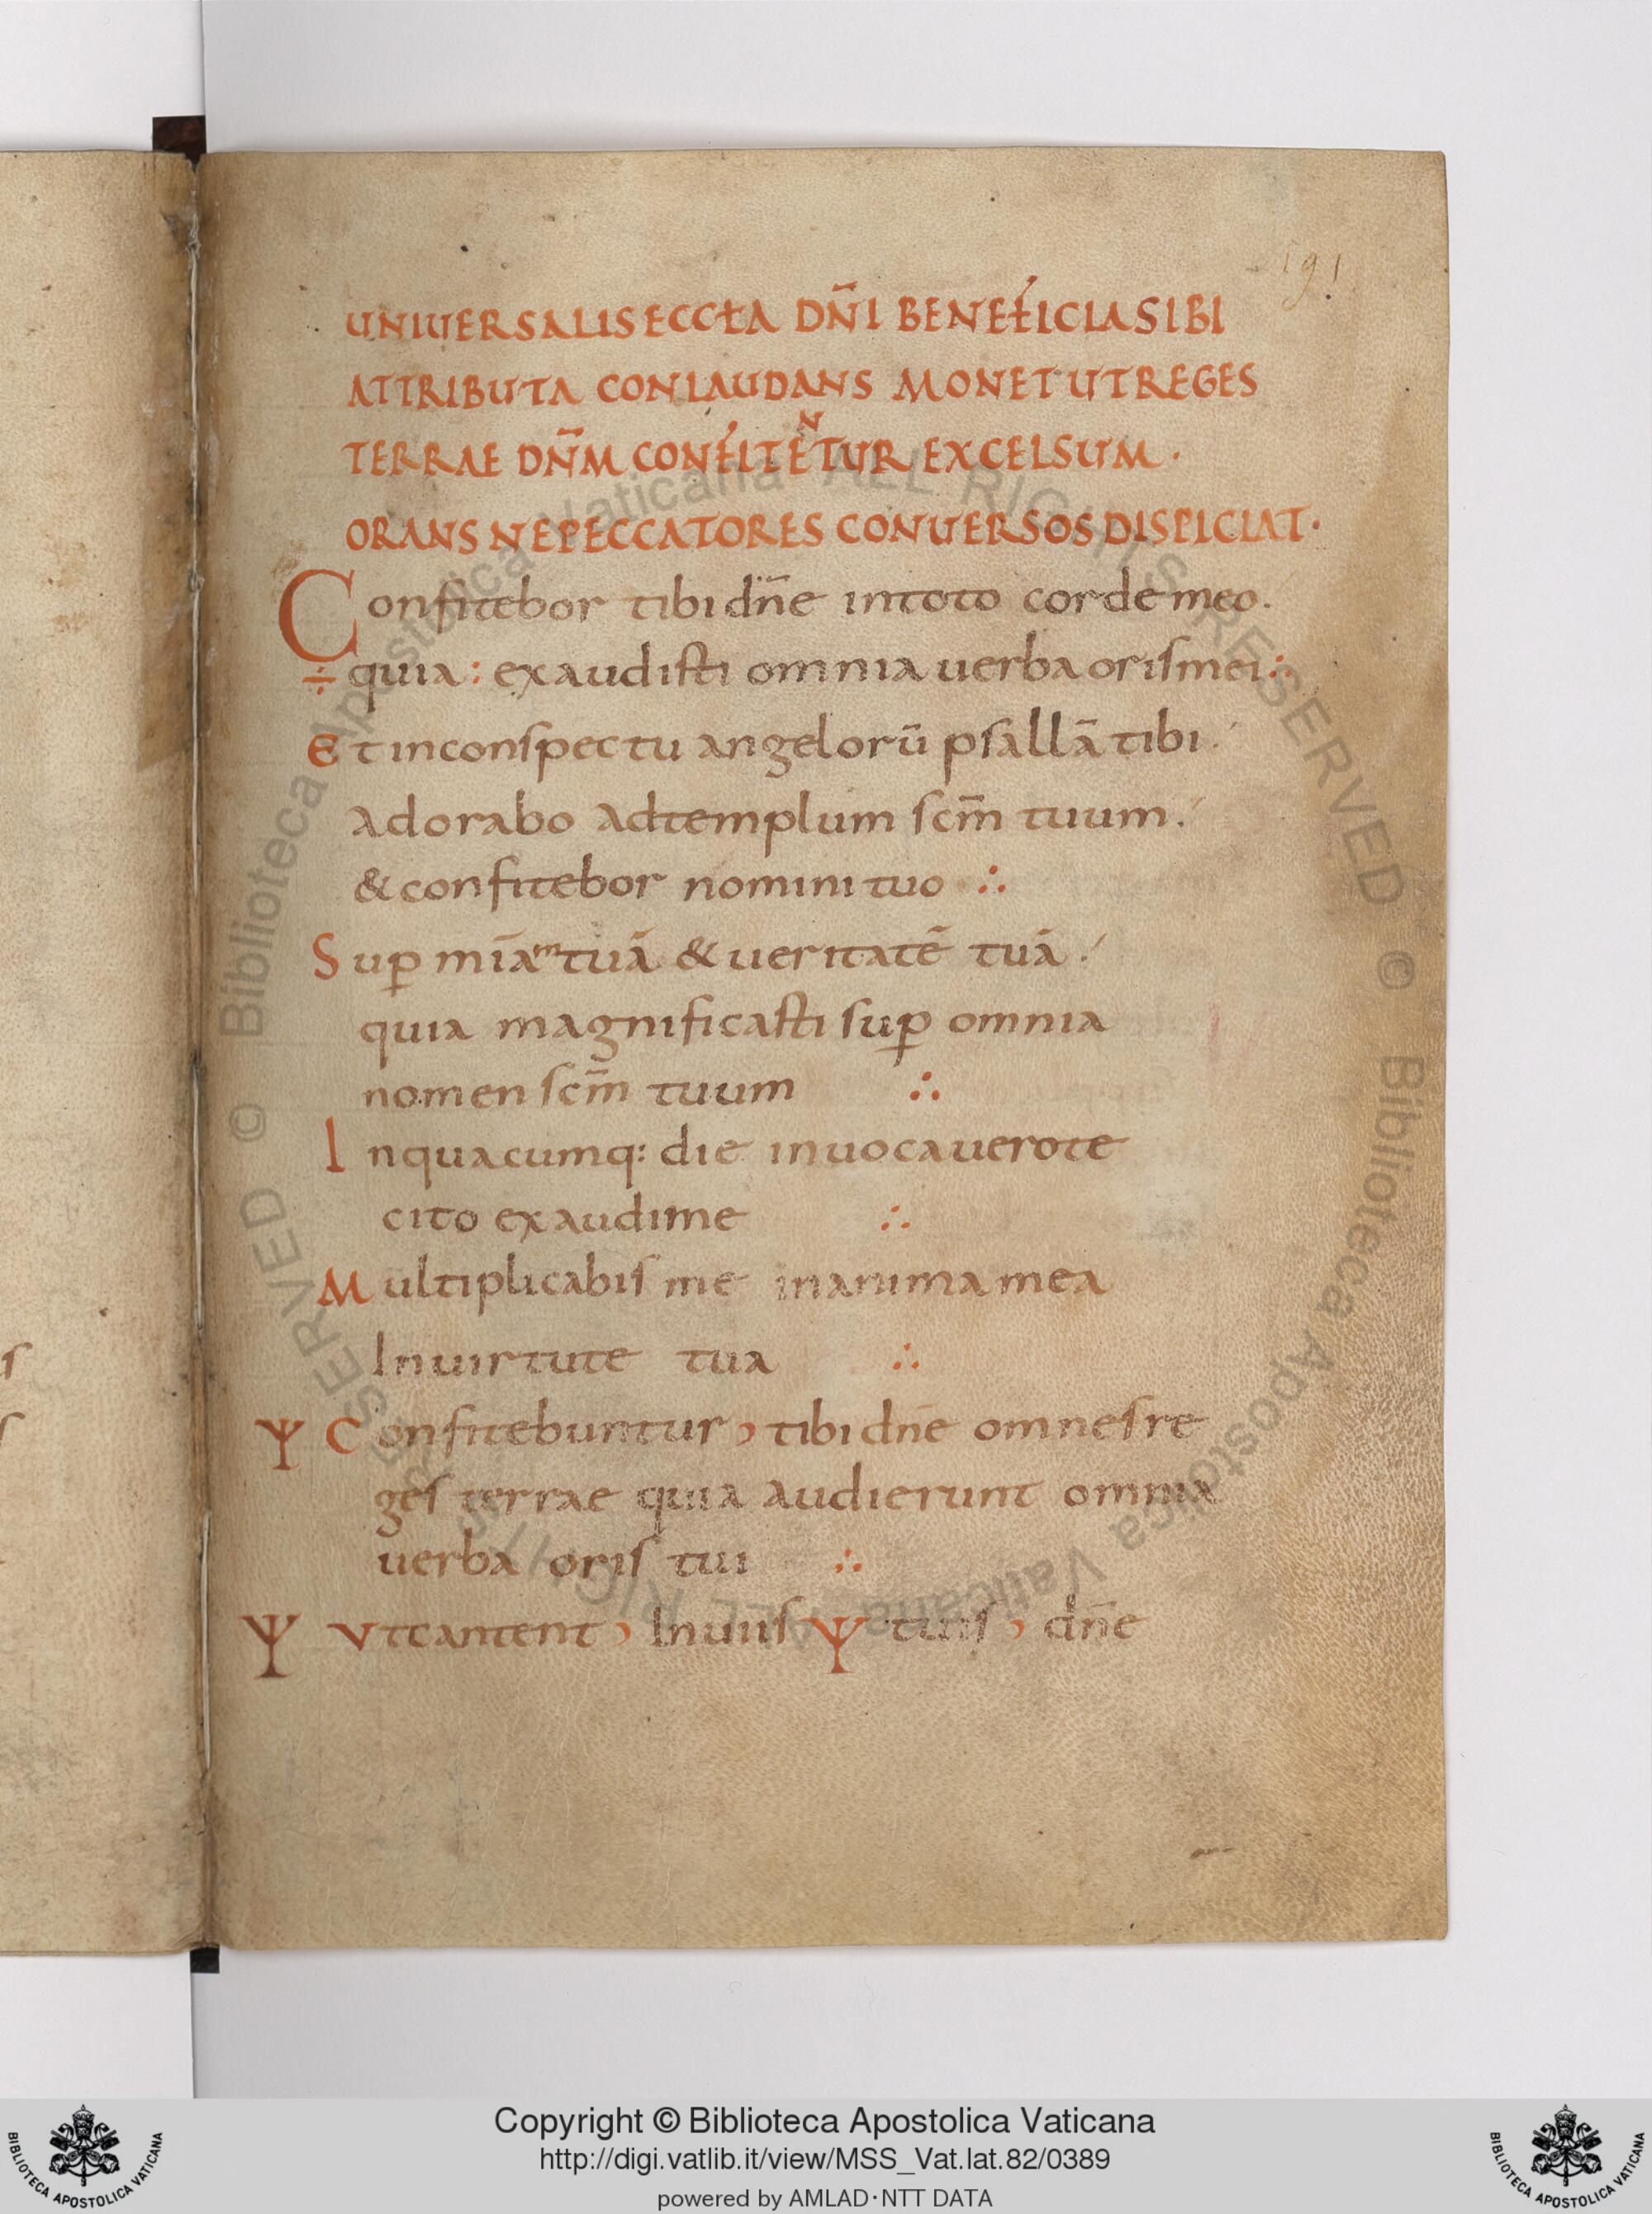 191
UNIUERSALIS ECCŁA DN̄I BENEFICIA SIBI
ATTRIBUTA CONLAUDANS MONET UT REGES
TERRAE DN̄M CONFITENTUR EXCELSUM ·
ORANS NE PECCATORES CONUERSOS DISPICIAT ·
Confitebor tibi dn̄e in toto corde meo.
÷ quia : exaudisti omnia uerba oris mei ∴
Et in conspectu angelorū psallā tibi ./
adorabo ad templum scm̄ tuum ./
& confitebor nomini tuo ∴
Sup̱ mīam tuā & ueritatē tuā ./
quia magnificasti sup̱ omnia
nomen scm̄ tuum ∴
In quacumq: die inuocauero te
cito exaudi me ∴
Multiplicabis me in anima mea
In uirtute tua ∴
Ψ Confitebuntur , tibi dn̄e omnes re
ges terrae quia audierunt omnia
uerba oris tui ∴
Ψ Vt cantent , In uiis Ψ tuis , dn̄e
© Biblioteca Apostolica Vaticana ALL RIGHTS RESERVED © Biblioteca Apostolica Vaticana ALL RIGHTS RESERVED
BIBLIOTECA APOSTOLICA VATICANA
Copyright © Biblioteca Apostolica Vaticana
http://digi.vatlib.it/view/MSS_Vat.lat.82/0389
powered by AMLAD·NTT DATA
BIBLIOTECA APOSTOLICA VATICANA